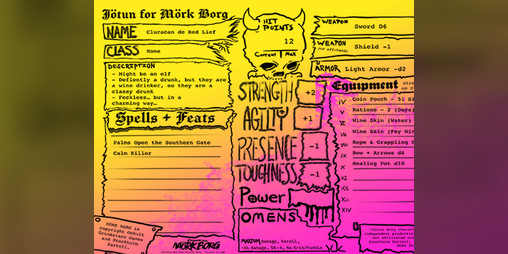 Jötun for Mörk Borg
NAME Cluracan de Red Lief
CLASS None
DESCRIPTION
- Might be an elf
- Defiently a drunk, but they are
a wine drinker, so they are a
classy drunk
- Feckless… but in a
charming way…
Spells + Feats
Palms Open the Southern Gate
Calm Killer
HIT
POINTS
12
Current Max
STRENGTH +2
AGILITY +1
PRESENCE -1
TOUGHNESS -1
Power
OMENS
MÖRK BORG is
copyright Ockult
Örtmästare Games
and Stockholm
Kartell.
MÖRK BORG
WEAPON Sword D6
WEAPON Shield -1
ARMOR Light Armor -d2
Equipment
IV Coin Pouch -
V Rations - 2 (Days
Wine Skin (Water)
Wine Skin (Fey
Rope & Grappling
Bow + Arrows d6
Healing Pot d10
XI
XII
XIV